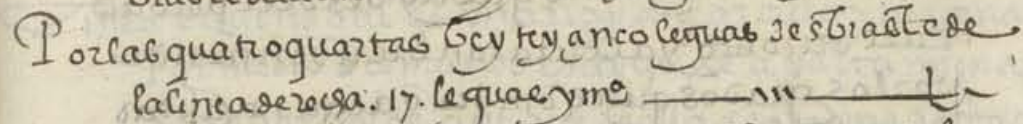 Por las quatro quartas beynteycinco leguas desbiaste de
la linea derecha. 17. leguas y mº